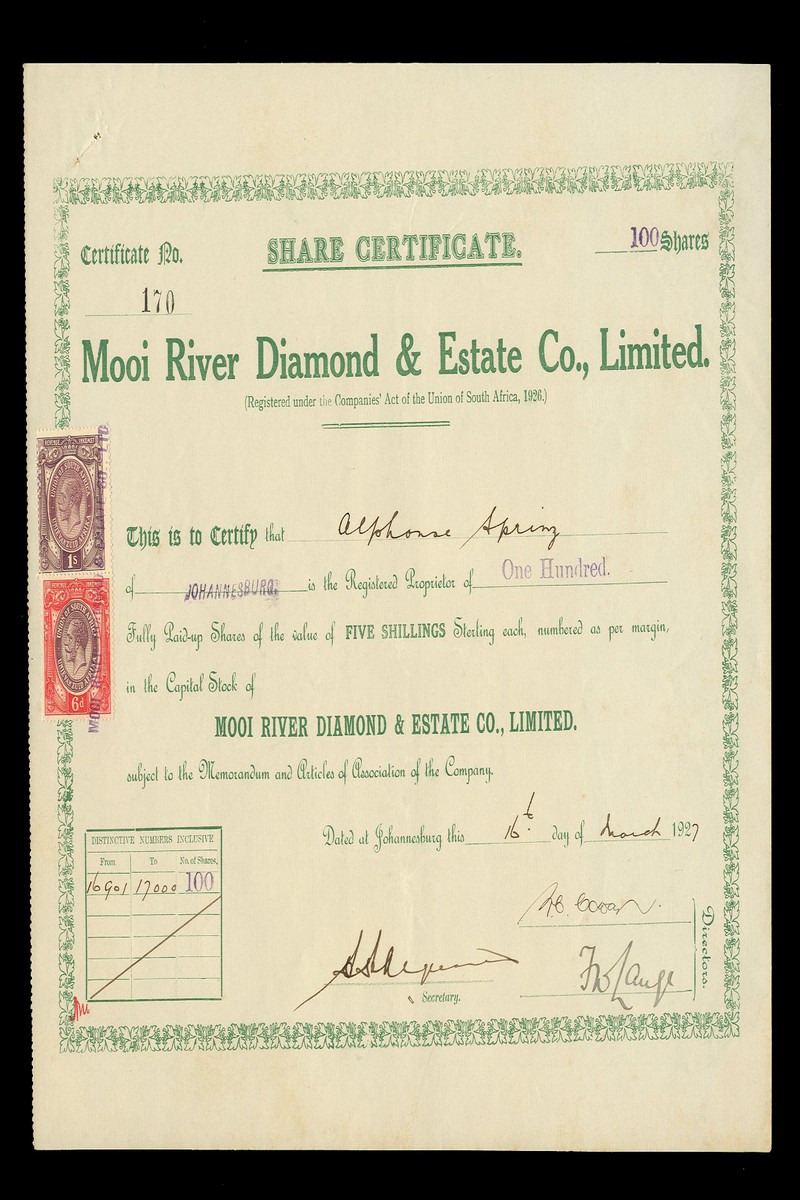 Certificate No.
SHARE CERTIFICATE.
100 Shares
170
Mooi River Diamond & Estate Co., Limited.
(Registered under the Companies' Act of the Union of South Africa, 1926.)
REVENUE INKOMST
UNION OF SOUTH AFRICA
UNIE VAN ZUID AFRIKA
1s
This is to Certify that Alphonse Spring
of JOHANNESBURG. is the Registered Proprietor of One Hundred.
REVENUE INKOMST
UNION OF SOUTH AFRICA
UNIE VAN ZUID AFRIKA
6d
Fully Paid-up Shares of the value of FIVE SHILLINGS Sterling each, numbered as per margin,
in the Capital Stock of
MOOI RIVER DIAMOND & ESTATE CO., LIMITED.
subject to the Memorandum and Articles of Association of the Company.
Dated at Johannesburg this 16t. day of March 1927
DISTINCTIVE NUMBERS INCLUSIVE
From To No. of Shares.
16901 17000 100
Directors.
Secretary.